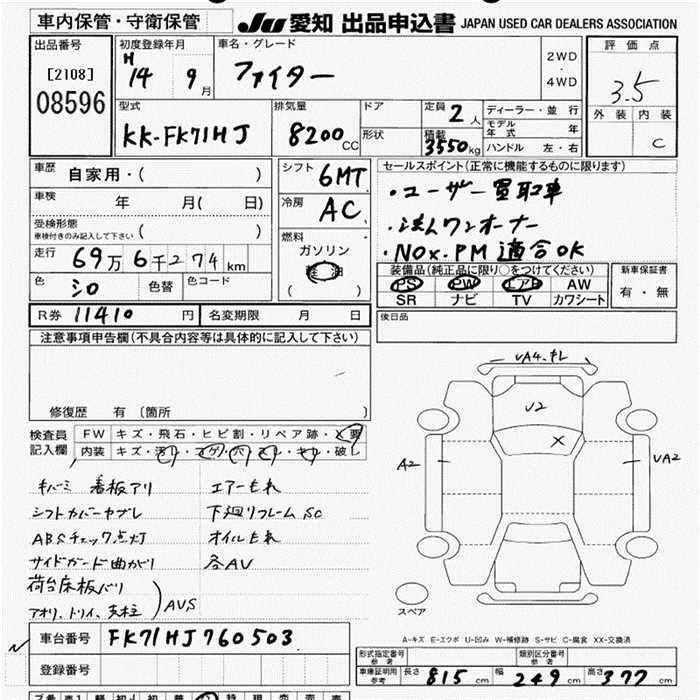 車内保管・守衛保管 JU 愛知 出品申込書 JAPAN USED CAR DEALERS ASSOCIATION
出品番号 初度登録年月 車名・グレード 評価点
[2108] H 14 9月 ファイター 2WD・4WD 3.5
08596 外装 内装
型式 排気量 ドア 定員 2人 ディーラー・並行
KK-FK71HJ 8200cc 形状 積載 3550kg モデル年式 年 C
ハンドル 左・右
車歴 自家用・( ) シフト 6MT セールスポイント(正常に機能するものに限ります)
車検 年 月( 日) 冷房 AC ・ユーザー買取車
受検形態 ・法人ワンオーナー
車検付きのみ記入して下さい ( ) 燃料 ガソリン ・NOx.PM適合OK
走行 69万6千274km ( )
装備品(純正品に限り○をつけてください) 新車保証書
色 シロ 色替 色コード PS PW エアB AW 有・無
SR ナビ TV カワシート
R券 11410円 名変期限 月 日 後日品
注意事項申告欄(不具合内容等は具体的に記入して下さい)
修復歴 有(箇所 )
検査員記入欄 FW キズ・飛石・ヒビ割・リペア跡・×要
内装 キズ・汚レ・コゲ・穴・スレ・キレ・破レ
キバミ 看板アリ エアーもれ
シフトカバーヤブレ 下廻リフレームSC
ABSチェック点灯 オイルもれ
サイドガード曲がり 各AU
荷台床板バリ
アオリ、トリイ、支柱 ) AVS
VA4.キレ
V2
X
A2
VA2
スペア
A-キズ E-エクボ U-凹み W-補修跡 S-サビ C-腐食 XX-交換済
車台番号 FK71HJ760503
登録番号
形式指定番号 参考 類別区分番号 参考
車庫証明用 参考 長さ 815cm 幅 249cm 高さ 377cm